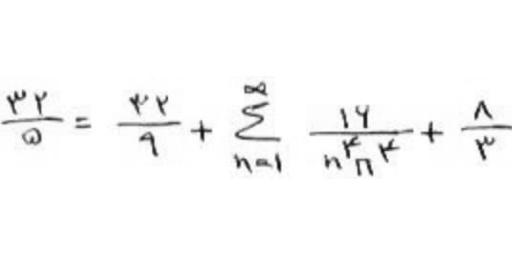 ۳۲/۵ = ۳۲/۹ + ∑_{n=۱}^{∞} ۱۶/(n^۴ π^۴) + ۸/۳